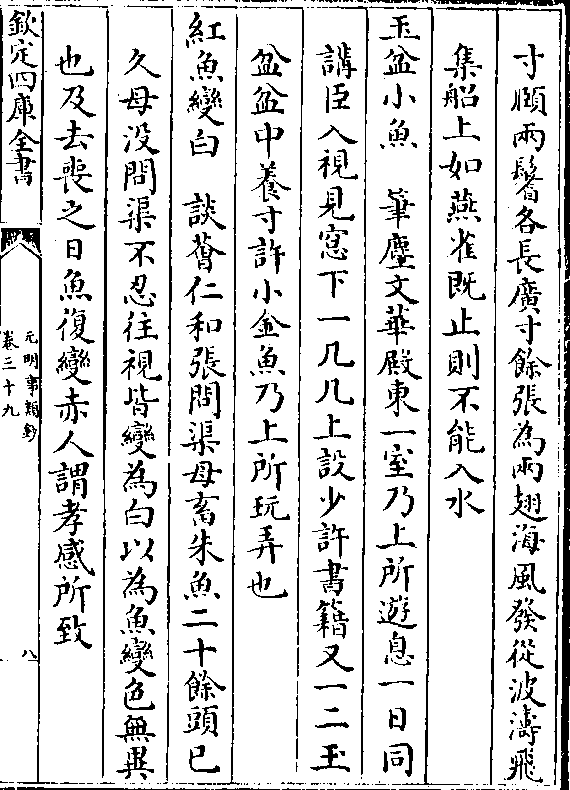 寸頤兩鬐各長廣寸餘張為兩翅海風發從波濤飛
集船上如燕雀既止則不能入水
玉盆小魚　筆麈文華殿東一室乃上所遊息一日同
講臣入視見窓下一几几上設少許書籍又一二玉
盆盆中養寸許小金魚乃上所玩弄也
紅魚變白　談薈仁和張問渠母畜朱魚二十餘頭已
久母没問渠不忍往視皆變為白以為魚變色無異
也及去喪之日魚復變赤人謂孝感所致
欽定四庫全書
元明事類鈔
卷三十九
八